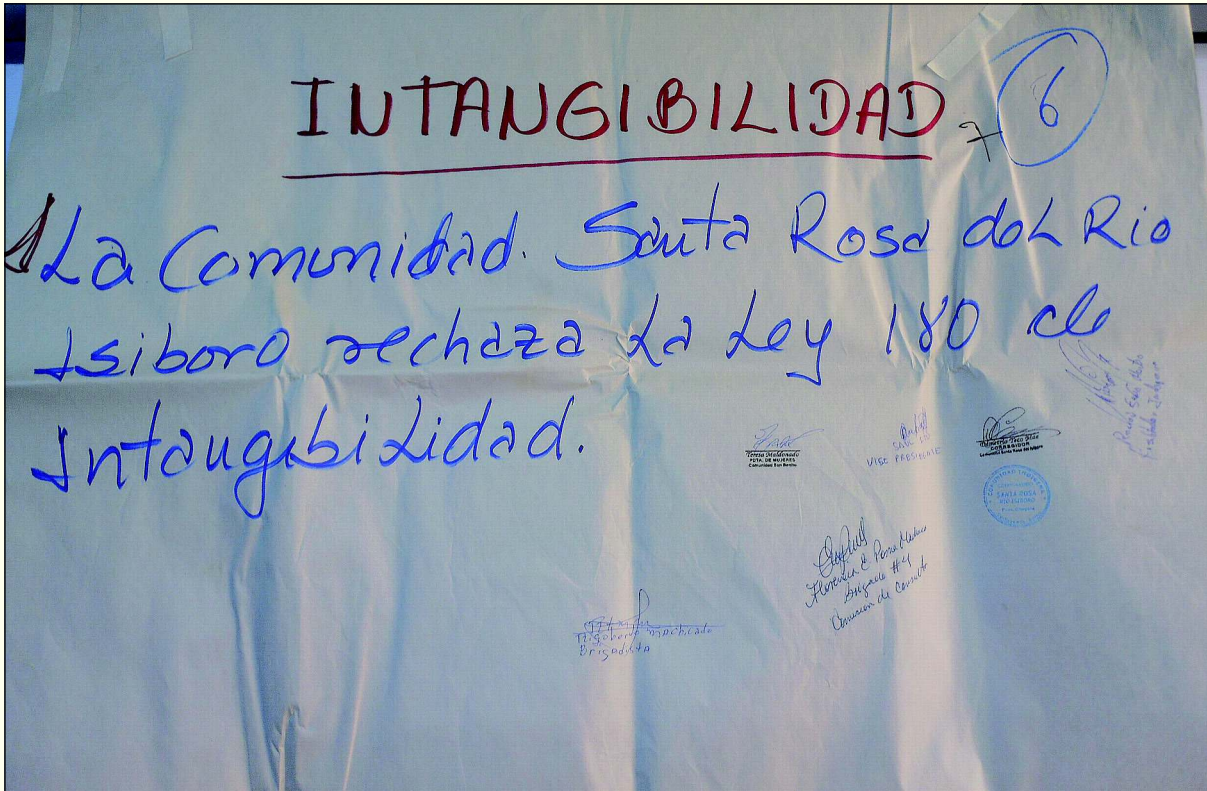 INTANGIBILIDAD
6
La Comunidad. Santa Rosa del Rio
Isiboro rechaza La Ley 180 de
Intangibilidad.
Teresa Maldonado
PDTA. DE MUJERES
Comunidad San Benito
VISE PRESIDENTE
CORREGIDOR
COMUNIDAD INDIGENA
SANTA ROSA
Florencia
Brigada #4
Comision de Consulta
Rigoberto Machicado
Brigadista